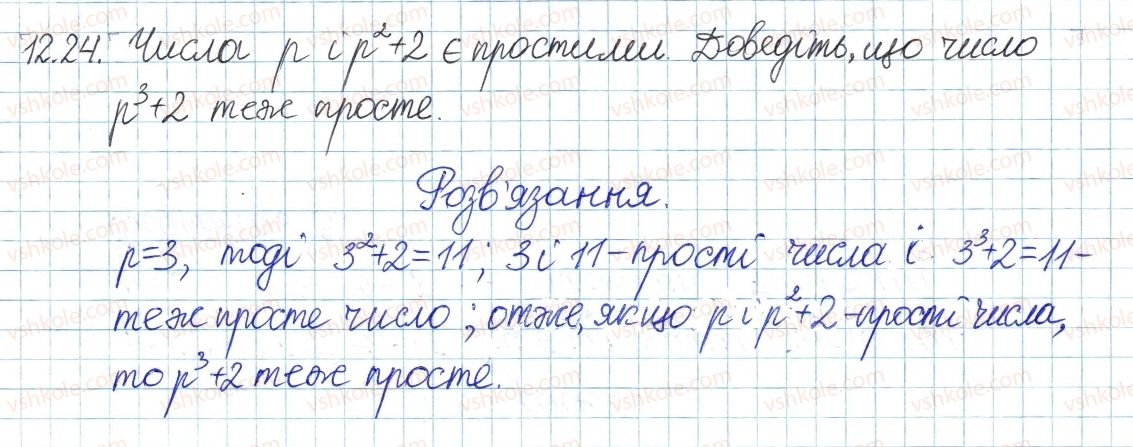 12.24. Числа p і p²+2 є простими. Доведіть, що число
p³+2 теж просте.
Розв'язання.
p=3, тоді 3²+2=11; 3 і 11-прості числа і 3³+2=11-
теж просте число; отже, якщо p і p²+2-прості числа,
то p³+2 теж просте.